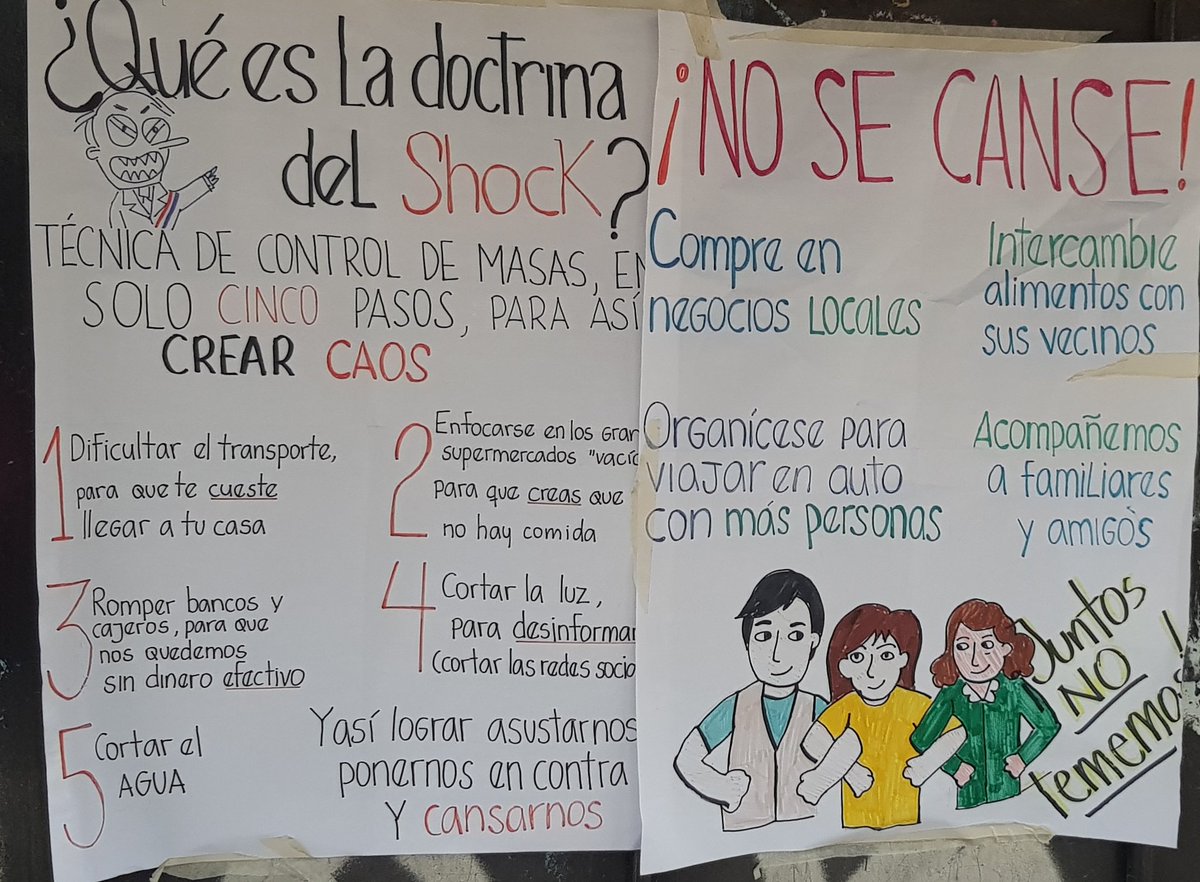 ¿Qué es la doctrina
del Shock?
TÉCNICA DE CONTROL DE MASAS, EN
SOLO CINCO PASOS, PARA ASÍ
CREAR CAOS
1 Dificultar el transporte,
para que te cueste
llegar a tu casa
2 Enfocarse en los gran
supermercados "vací
para que creas que
no hay comida
3 Romper bancos y
cajeros, para que
nos quedemos
sin dinero efectivo
4 Cortar la luz,
para desinformar
(cortar las redes socia
5 Cortar el
AGUA
Y así lograr asustarnos
ponernos en contra
Y cansarnos
¡NO SE CANSE!
Compre en
negocios LOCALES
Intercambie
alimentos con
sus vecinos
Organícese para
viajar en auto
con más personas
Acompañemos
a familiares
y amigos
Juntos
NO
tememos!